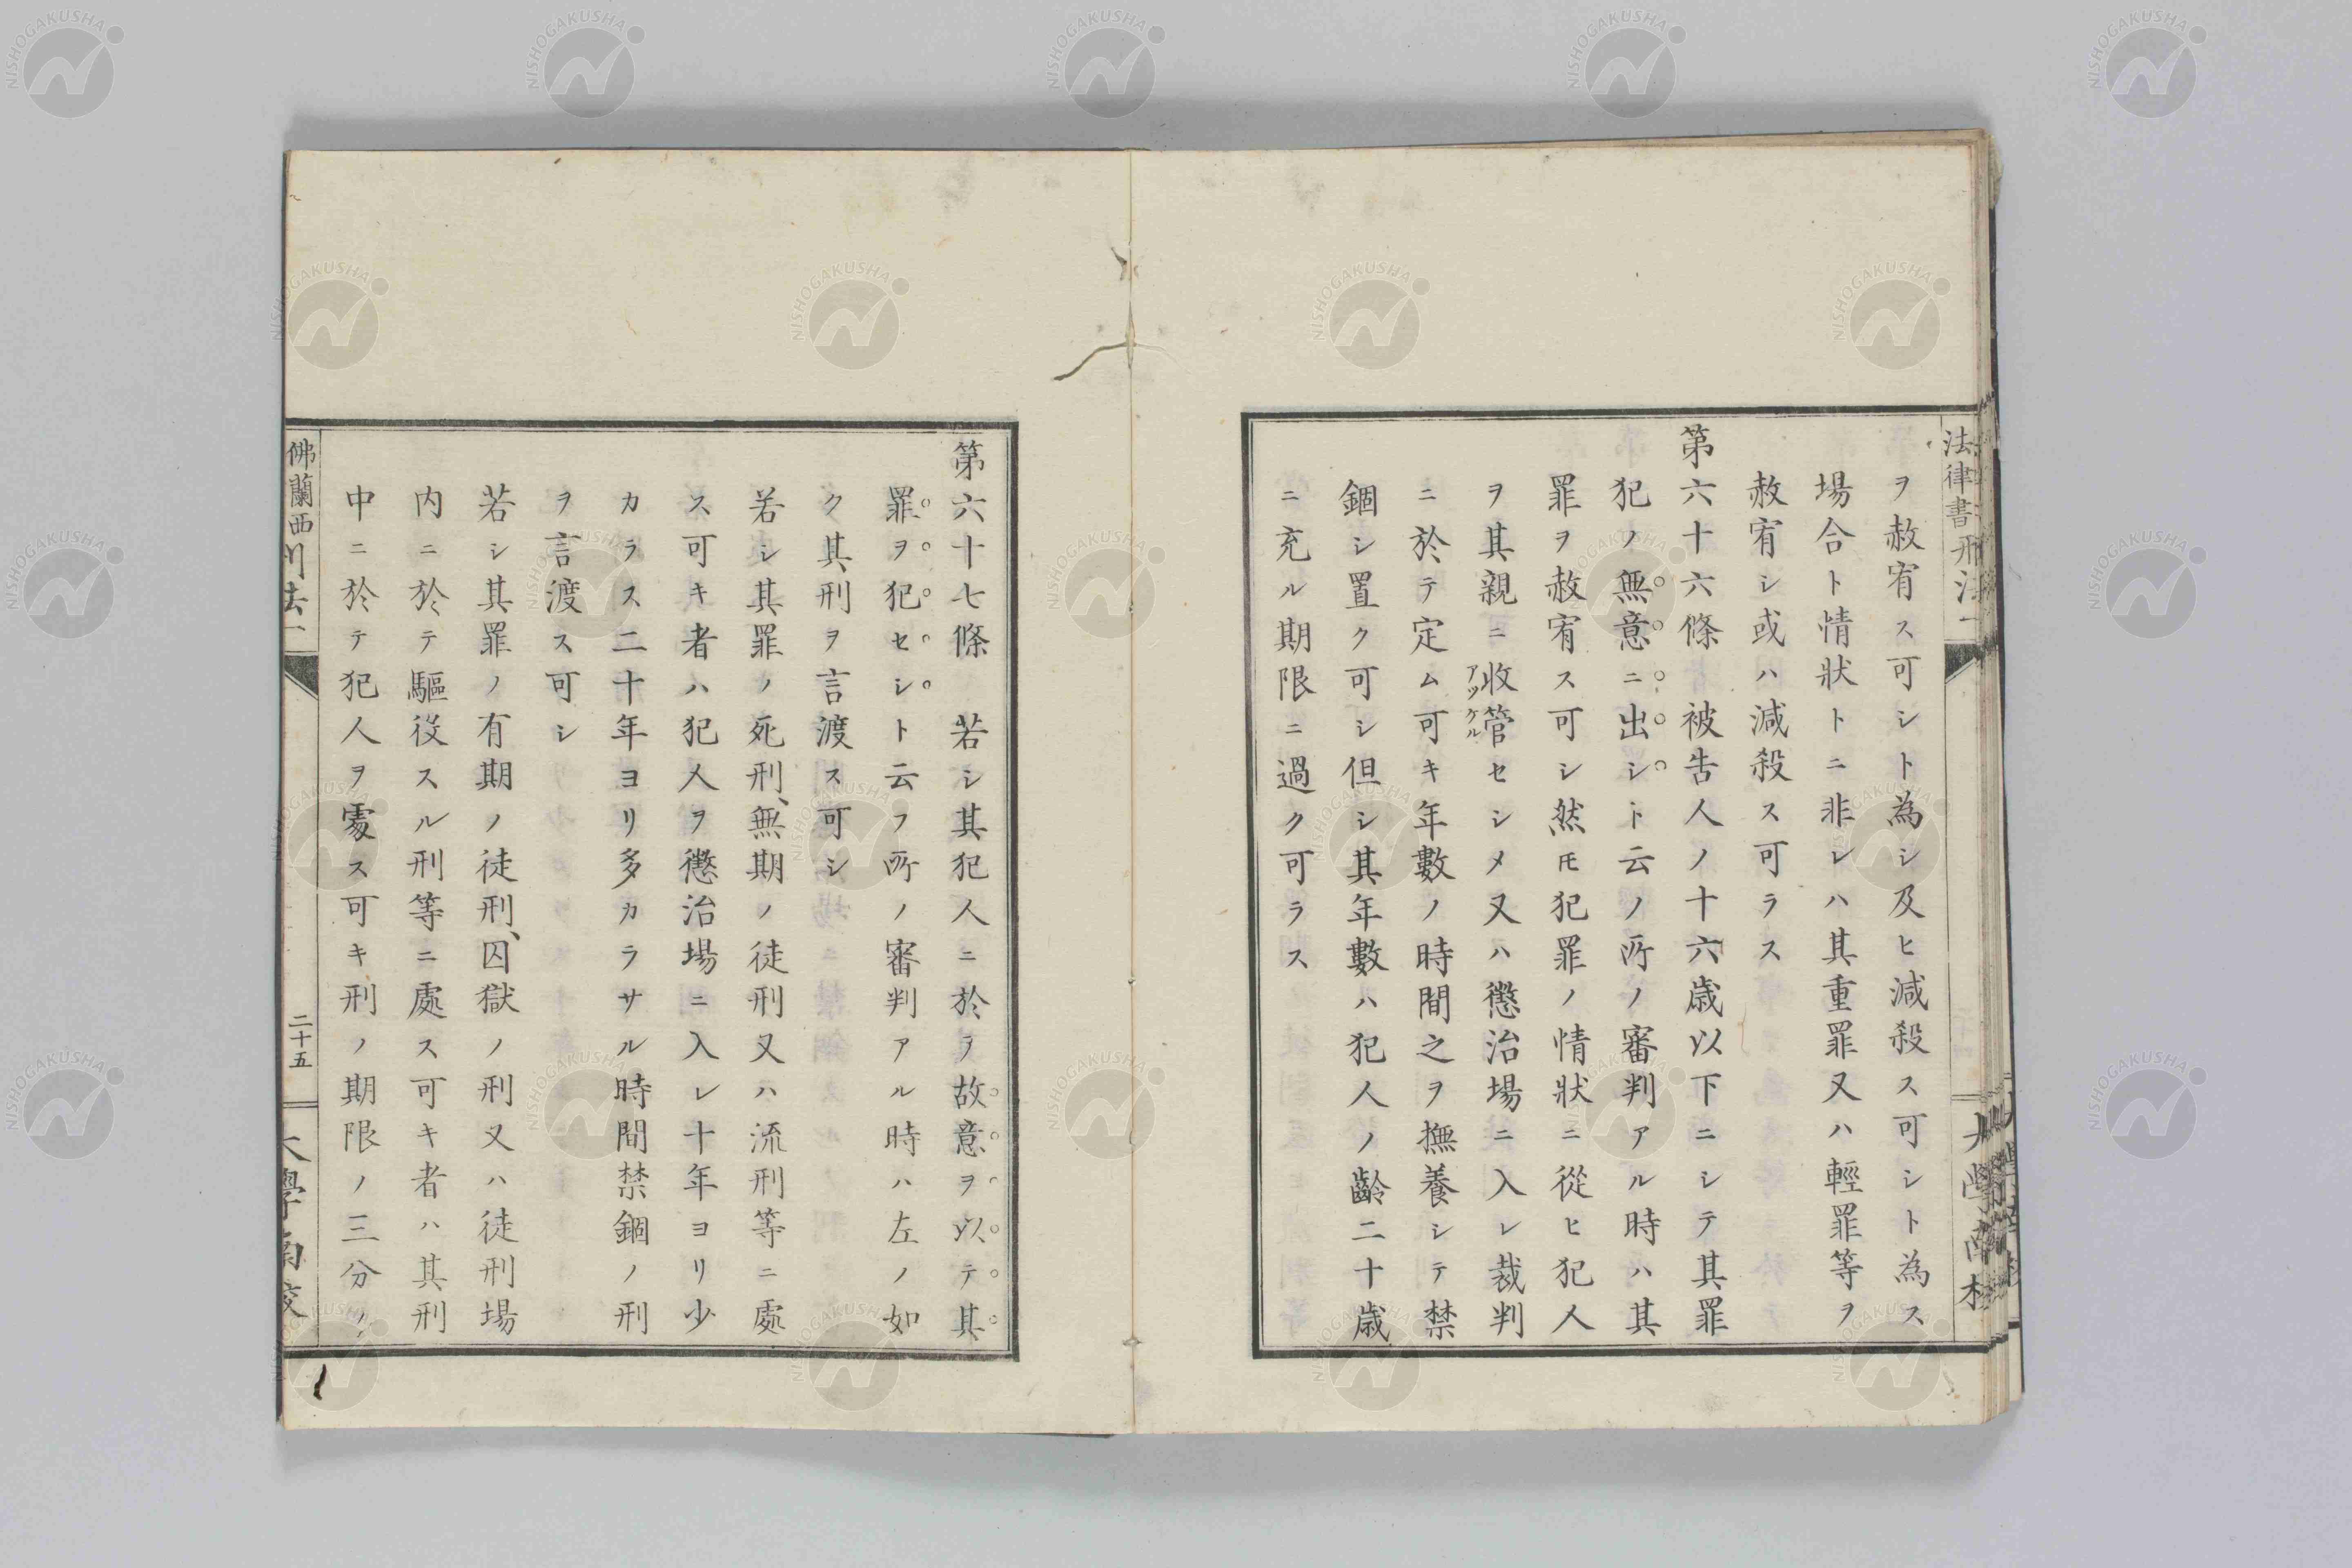 法律書刑法一
ヲ赦宥ス可シト為シ及ヒ減殺ス可シト為ス
場合ト情狀トニ非レハ其重罪又ハ輕罪等ヲ
赦宥シ或ハ減殺ス可ラス
第六十六條 被告人ノ十六歳以下ニシテ其罪
犯ノ無意ニ出シト云ノ所ノ審判アル時ハ其
罪ヲ赦宥ス可シ然モ犯罪ノ情狀ニ從ヒ犯人
ヲ其親ニ收管セシメ又ハ懲治場ニ入レ裁判
アツケル
ニ於テ定ム可キ年數ノ時間之ヲ撫養シテ禁
錮シ置ク可シ但シ其年數ハ犯人ノ齡二十歳
ニ充ル期限ニ過ク可ラス
第六十七條 若シ其犯人ニ於テ故意ヲ以テ其
罪ヲ犯セシト云フ所ノ審判アル時ハ左ノ如
ク其刑ヲ言渡ス可シ
若シ其罪ノ死刑、無期ノ徒刑又ハ流刑等ニ處
ス可キ者ハ犯人ヲ懲治場ニ入レ十年ヨリ少
カラス二十年ヨリ多カラサル時間禁錮ノ刑
ヲ言渡ス可シ
若シ其罪ノ有期ノ徒刑、囚獄ノ刑又ハ徒刑場
内ニ於テ驅役スル刑等ニ處ス可キ者ハ其刑
中ニ於テ犯人ヲ處ス可キ刑ノ期限ノ三分ノ
佛蘭西刑法一
二十五
大學南校
NISHOGAKUSHA